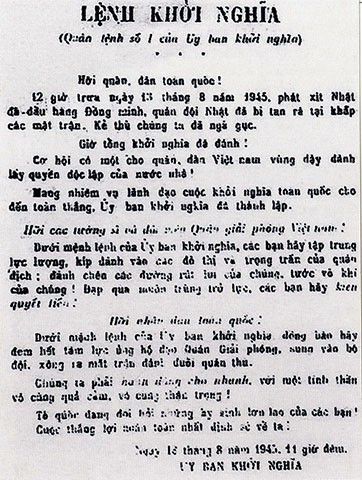 LỆNH KHỞI NGHĨA
(Quân lệnh số 1 của Ủy ban khởi nghĩa)
Hỡi quân, dân toàn quốc!
12 giờ trưa ngày 13 tháng 8 năm 1945, phát xít Nhật
đã đầu hàng Đồng minh, quân đội Nhật đã bị tan rã tại khắp
các mặt trận. Kẻ thù chúng ta đã ngã gục.
Giờ tổng khởi nghĩa đã đánh!
Cơ hội có một cho quân, dân Việt Nam vùng dậy đánh
lấy quyền độc lập của nước nhà!
Mang nhiệm vụ lãnh đạo cuộc khởi nghĩa toàn quốc cho
đến toàn thắng, Ủy ban khởi nghĩa đã thành lập.
Hỡi các tướng sĩ và đội viên Quân giải phóng Việt Nam!
Dưới mệnh lệnh của Ủy ban khởi nghĩa, các bạn hãy tập trung
lực lượng, kíp đánh vào các đô thị và trọng trấn của quân
địch; đánh chẹn các đường rút lui của chúng, tước võ khí
của chúng! Đạp qua muôn trùng trở lực, các bạn hãy kiên
quyết tiến!
Hỡi nhân dân toàn quốc!
Dưới mệnh lệnh của Ủy ban khởi nghĩa, đồng bào hãy
đem hết tâm lực ủng hộ đạo Quân Giải phóng, sung vào bộ
đội, xông ra mặt trận đánh đuổi quân thù.
Chúng ta phải hành động cho nhanh, với một tinh thần
vô cùng quả cảm, vô cùng thận trọng!
Tổ quốc đang đòi hỏi những hy sinh lớn lao của các bạn!
Cuộc thắng lợi hoàn toàn nhất định sẽ về ta!
Ngày 13 tháng 8 năm 1945, 11 giờ đêm.
ỦY BAN KHỞI NGHĨA